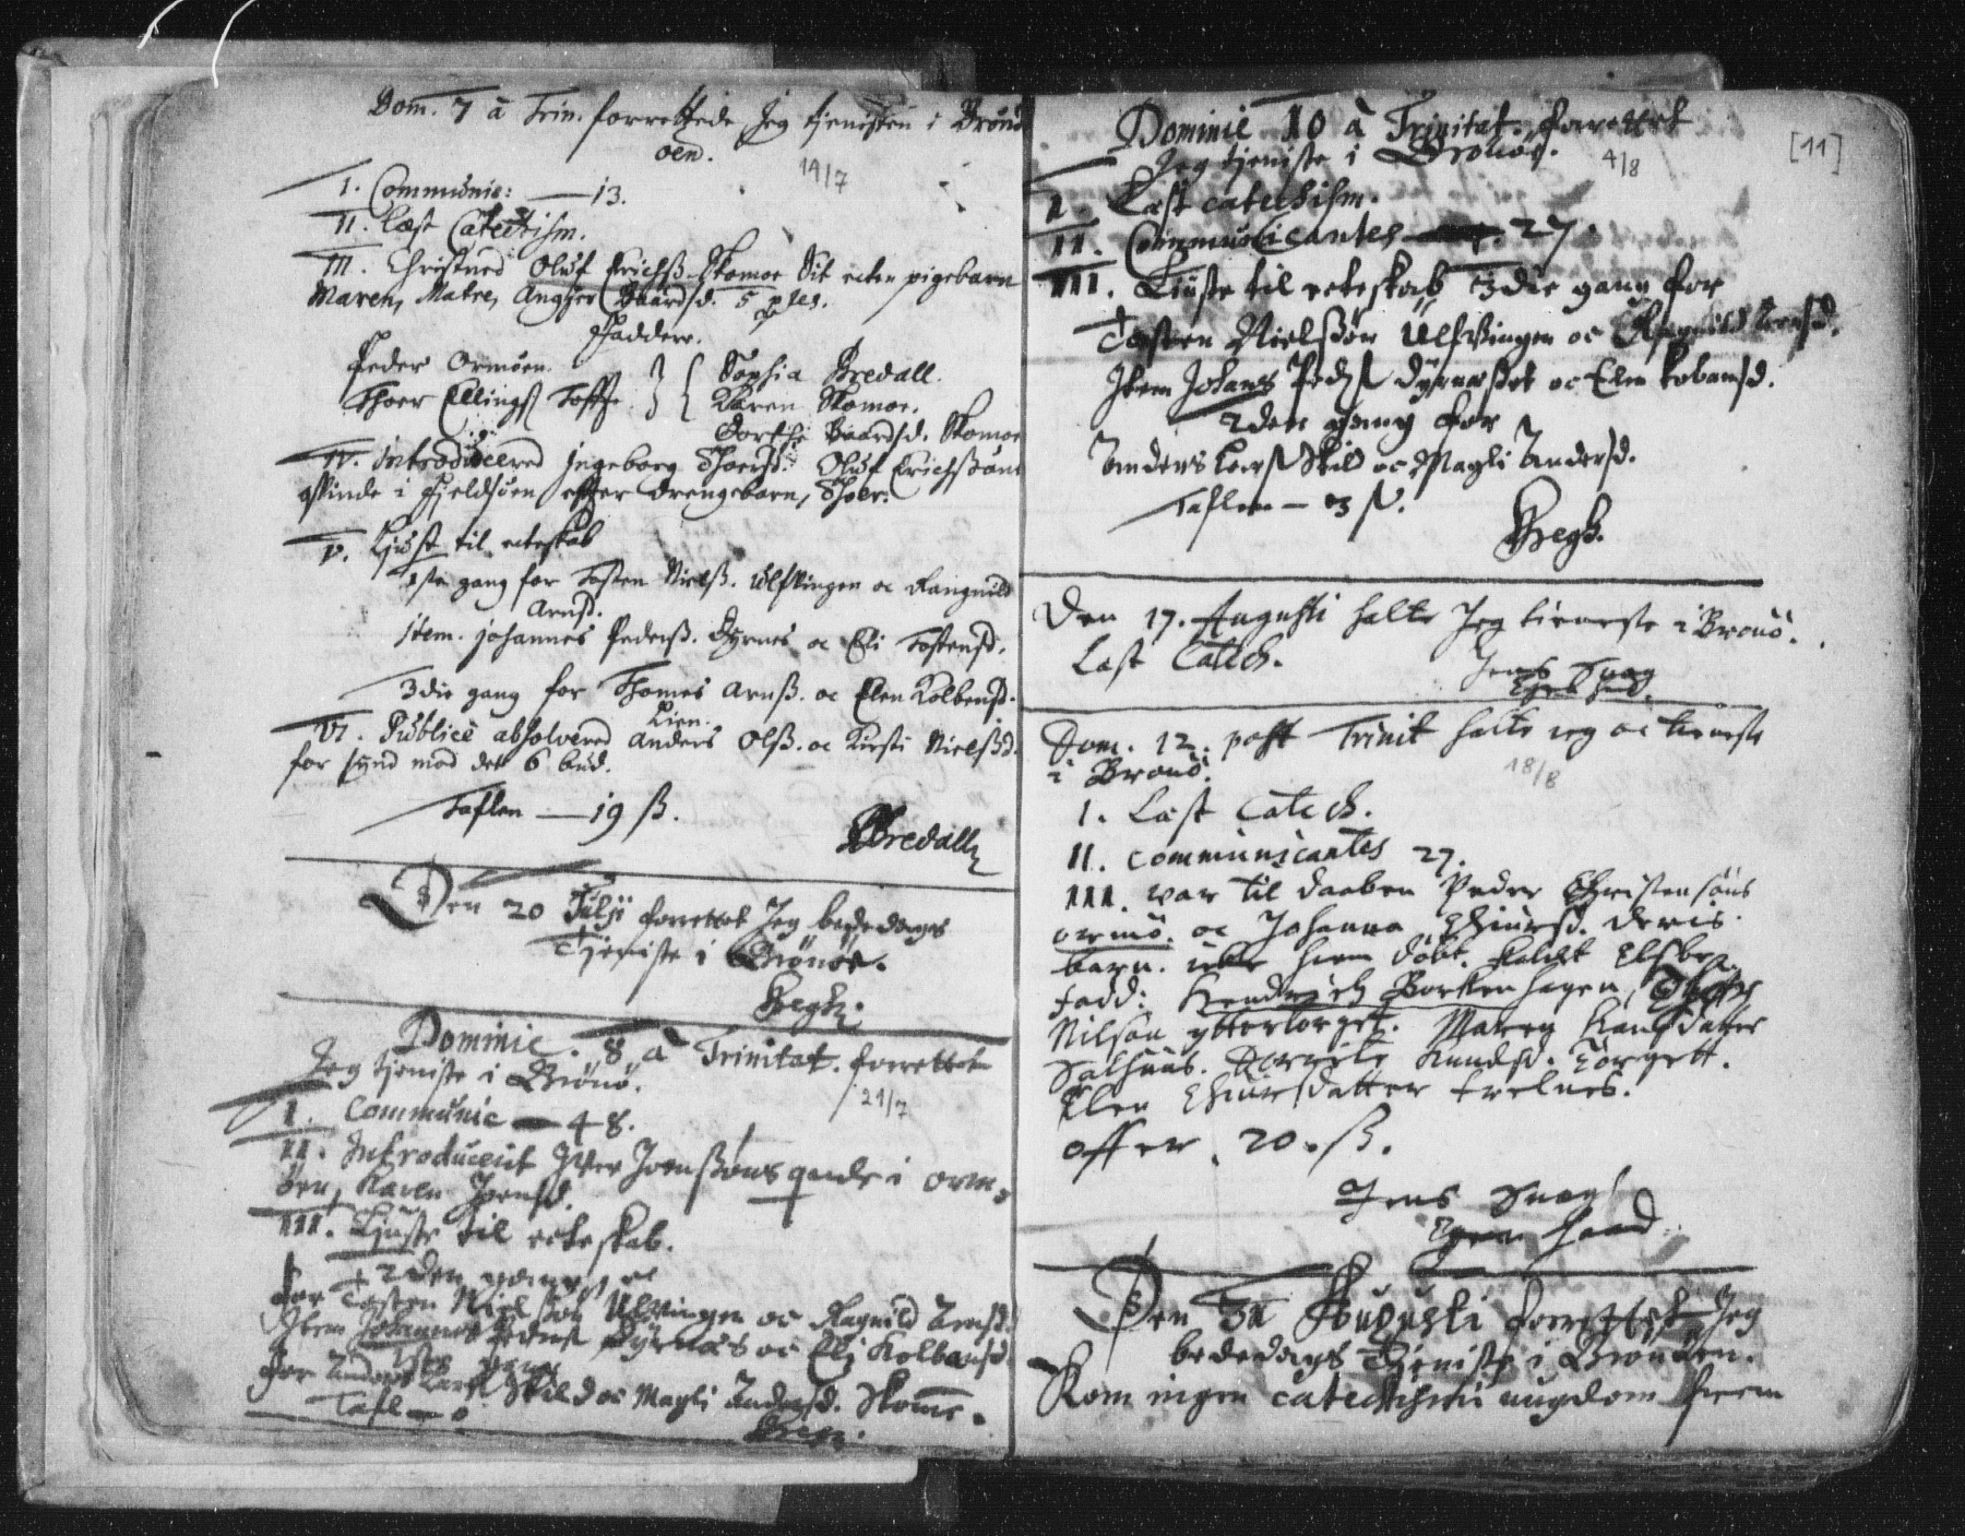 Dom. 7 à Trin. forrettede Jeg tjenisten i Brönö
öen.
14/7
I. Communic: — 13.
II. læst Catechism.
III. Christned Oluf Erichß. Skomoe Sit ecten pigebarn
Maren, Matre, Baardsd. 5
Faddere.
Peder Ormöen. Sophia Bredall.
Thoer Ellingß Karen Skomoe.
Dorthe Baardsd. Skomoe
IV. introducered Jngeborg Thoersd. Oluf Erichßöns
qvinde i Fjeldsöen efter drengebarn, Thoer.
V. Liust til ecteskab
1ste gang for Tosten Nielß. Ulfvingen oc Rangnild
Arnsd.
item. johannes Pederß. Dyrnes oc Eli Tostensd.
3die gang for Thomes Arnß. oc Elen Kolbensd.
Lien.
VI. Publicè absolvered Anders Olß. oc Kirsti Nielßd.
for synd mod det 6 bud.
Taflen — 19 ß.
Bredall
Den 20 Julji forrettet Jeg bededags
Tjeniste i Brönöe.
Dominic. 8 à Trinitat. forrettet
Jeg tjeniste i Brönö.
21/7
I. Communic — 48.
II. Introducerit Iver Joenßöns qvinde i orm-
öen, Karen Joensd.
III. Liuste til ecteskab.
2den gang
for Tosten Nielsön Ulvingen oc Ragnild Arnsd.
Item Johannes Pederß Dyrnæs oc Elj Kolbansd
1ste gang
for Anders Larß Skild oc Magli Andersd. Skomo.
Tafl — 0
[11]
Dominic 10 à Trinitat. forrettet
Jeg tjeniste i Brönöe.
4/8
I. Læst catechism.
II. Communicantes 27.
III. Liuste til ecteskab 3die gang for
Tosten Nielßön Ulfvingen oc Ragnild Arnsd.
Item Johans Pedß Dyrnæßet oc Elin kobansd.
2den gang for
Anders Larß Skild oc Magli Andersd.
Taflen — 3 ß.
Den 17. Augusti holte Jeg tieneste i Brönö.
Last Catech.
Jens Snog
Dom. 12. post Trinit holte ieg oc tieneste
i Brönö.
18/8
I. Last Catech.
II. Communicantes 27.
III. war til daaben Peder Christensöns
ormö. oc Johanna deris
barn. hiem döbt. kaldet Elsbe
fadd: Hendrich Borkenhagen,
Nilsön yttertorget. Maren Hansdatter
Salhuus. Knudsd. Torgett.
Elen
offer. 20. ß.
Jens Snog
Egen haand
Den 31 Augusti forrettet Jeg
bededags Tjeniste i Brönöen.
Kom ingen catechismi ungdom frem